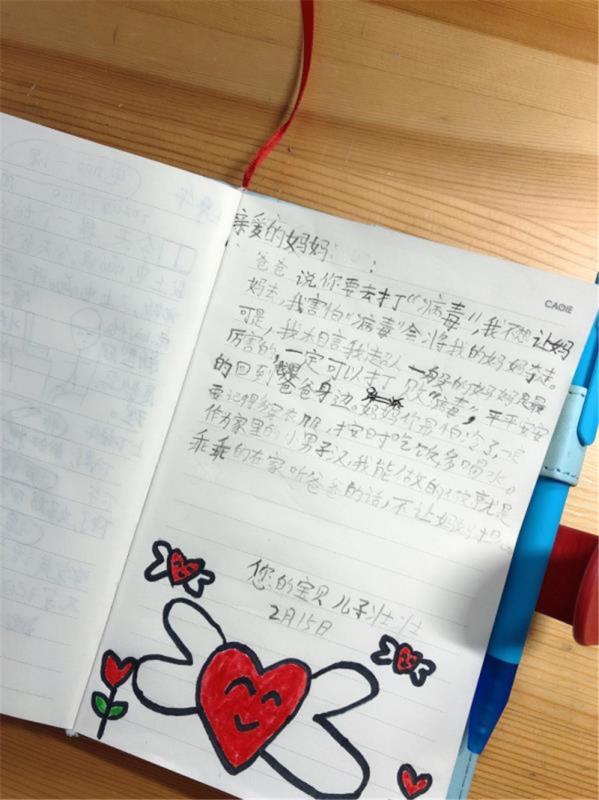 亲爱的妈妈：
CAGIE
爸爸说你要去打“病毒”，我不想让妈
妈去，我害怕“病毒”会将我的妈妈夺走。
可是，我相信我超人一般的妈妈是最
厉害的，一定可以打败“病毒”，平平安安
的回到爸爸身边。妈妈你最怕冷了，一定
要记得多穿衣服，按时吃饭多喝水。
作为家里的小男子汉我能做的就是
乖乖的在家听爸爸的话，不让妈妈担心。
您的宝贝儿子壮壮
2月15日